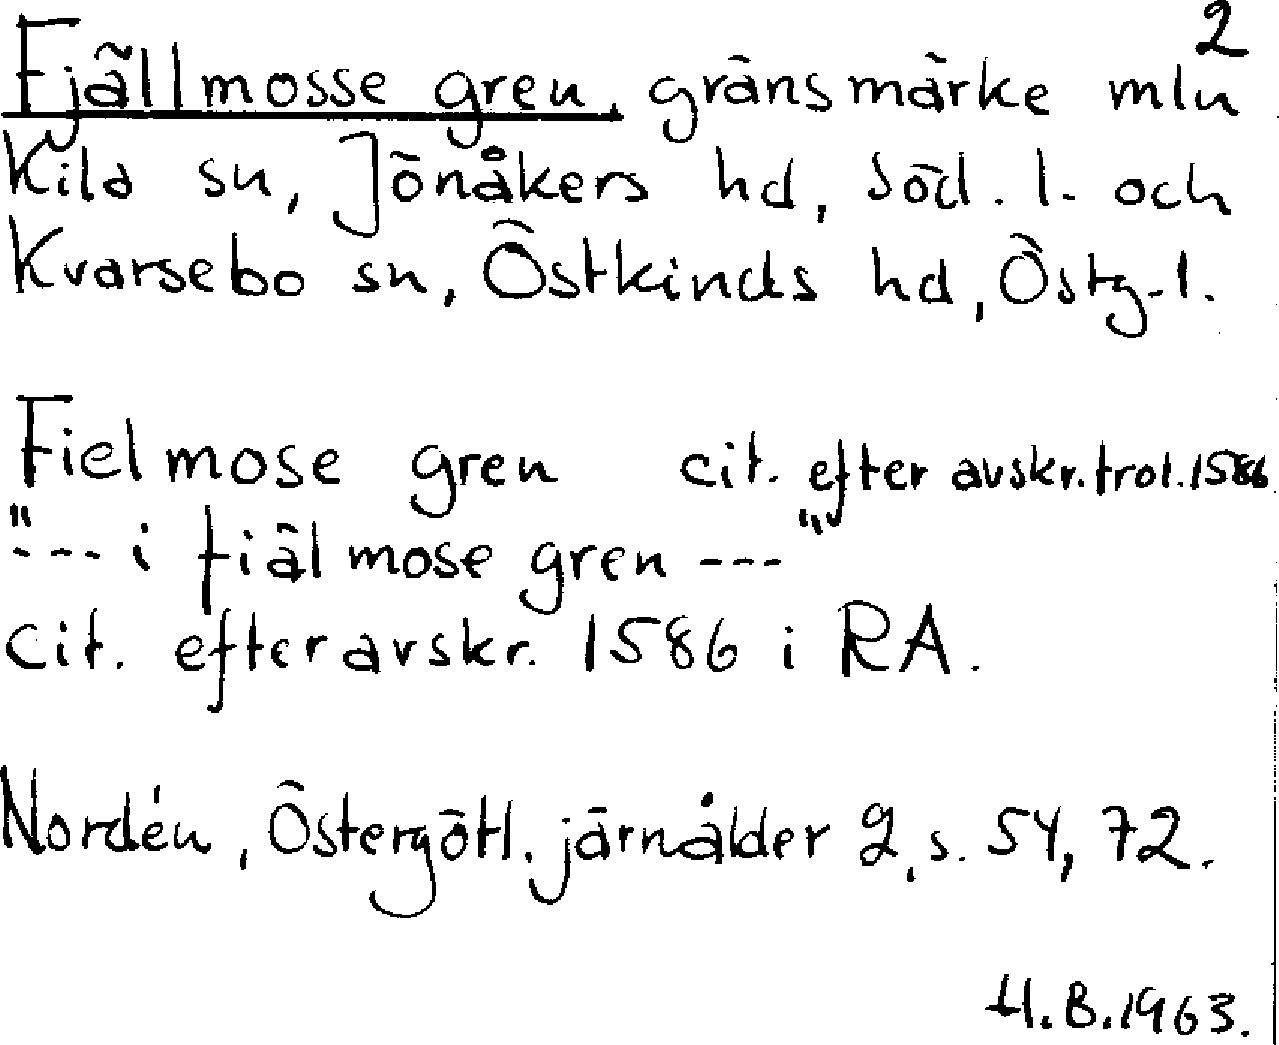 2
Fjällmosse gren, gränsmärke mln
Kila sn, Jönåkers hd, Söd. l. och
Kvarsebo sn, Östkinds hd, Östg. l.
Fiel mose gren cit. efter avskr. trol. 1586
"--- i fiäl mose gren ---"
cit. efter avskr. 1586 i RA.
Nordén, Östergötl. järnålder 2, s. 54, 72.
H.B.1963.